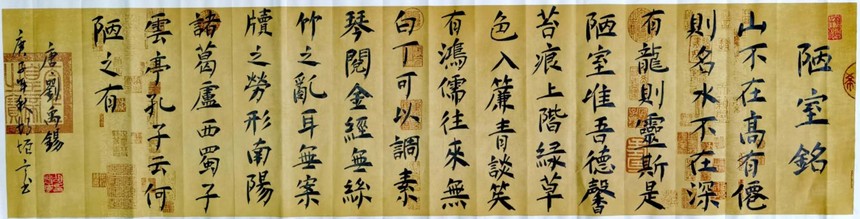 陋室銘
山不在高有僊
則名水不在深
有龍則靈斯是
陋室惟吾德馨
苔痕上階緑草
色入簾青談笑
有鴻儒往來無
白丁可以調素
琴閱金經無絲
竹之亂耳無案
牘之勞形南陽
諸葛廬西蜀子
雲亭孔子云何
陋之有
唐劉禹錫
庚子年秋